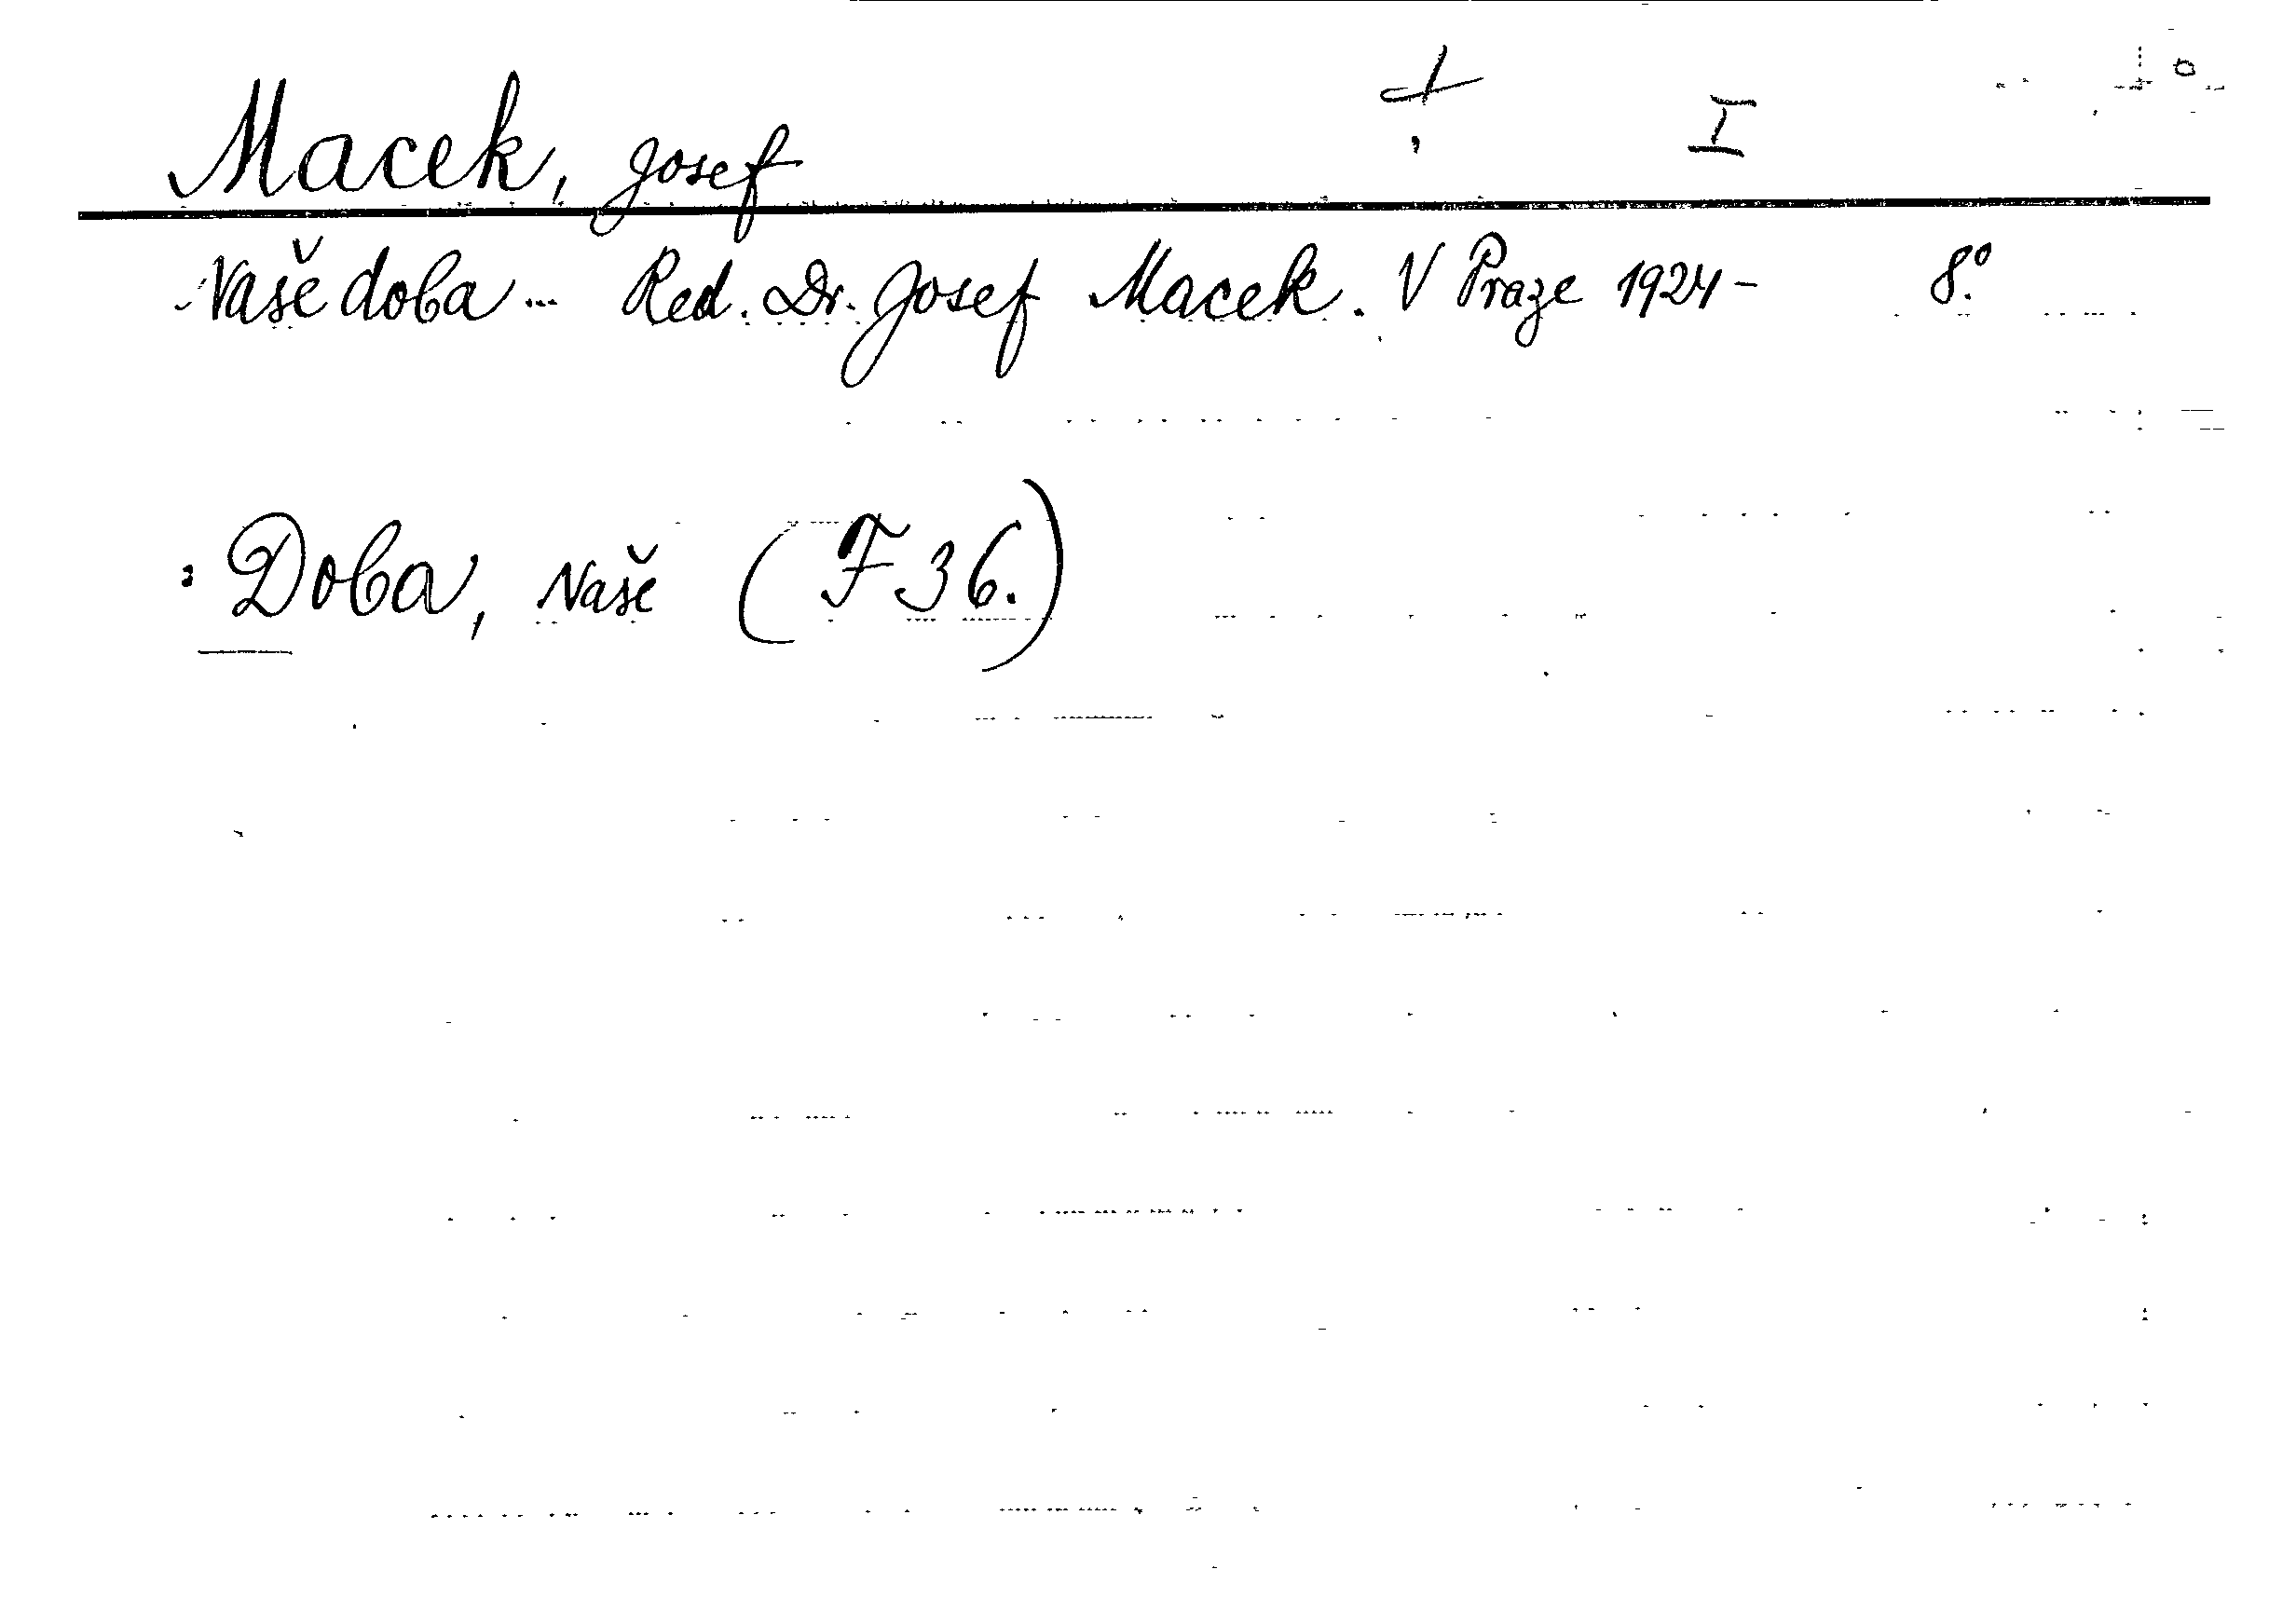 Macek, Josef + I
Naše doba ... Red. Dr. Josef Macek. V Praze 1924 - 8.°
: Doba, Naše (F 36.)